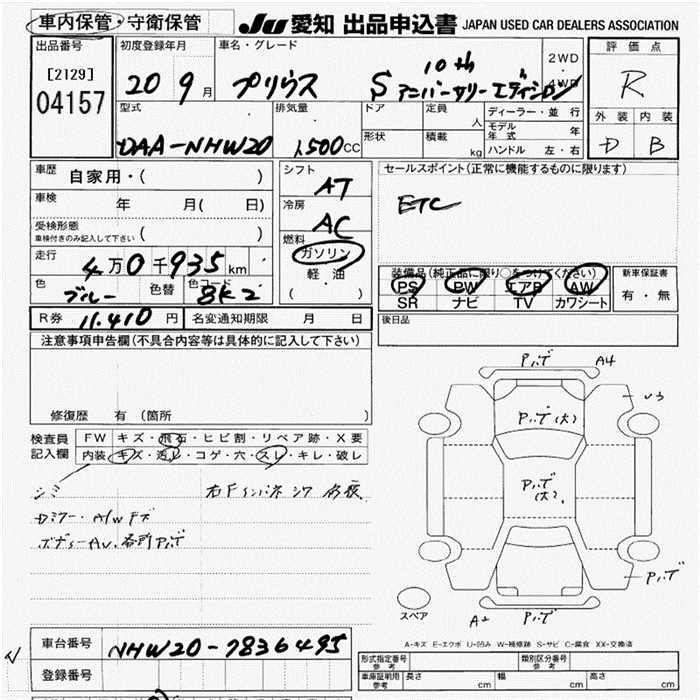 車内保管・守衛保管 JU 愛知 出品申込書 JAPAN USED CAR DEALERS ASSOCIATION
出品番号 初度登録年月 車名・グレード 2WD・4WD 評価点
[2129] 04157 20 9月 プリウス S 10th アニバーサリーエディション R
型式 排気量 ドア 定員 人 ディーラー・並行 外装 内装
形状 積載 kg モデル年式 年
DAA-NHW20 1,500cc ハンドル 左・右 D B
車歴 自家用・( ) シフト AT セールスポイント(正常に機能するものに限ります)
車検 年 月( 日) 冷房 AC ETC
受検形態 車検付きのみ記入して下さい ( )
燃料 ガソリン 軽・油 ( )
走行 4万0千935km 装備品(純正品に限り○をつけてください) 新車保証書
色 ブルー 色替 色コード 8K2 PS PW エアB AW 有・無
SR ナビ TV カワシート
R券 11,410円 名変通知期限 月 日 後日品
注意事項申告欄(不具合内容等は具体的に記入して下さい)
修復歴 有 (箇所
検査員記入欄 FW キズ・飛石・ヒビ割・リペア跡・X要
内装 キズ・汚レ・コゲ・穴・スレ・キレ・破レ
シミ
AWキズ
PVデ A4
U3
PVデ(大)
PVデ(大)
PVデ
スペア A2 PVデ
A-キズ E-エクボ U-凹み W-補修跡 S-サビ C-腐食 XX-交換済
車台番号 NHW20-7836495
登録番号
形式指定番号 参考 類別区分番号 参考
車庫証明用 参考 長さ cm 幅 cm 高さ cm